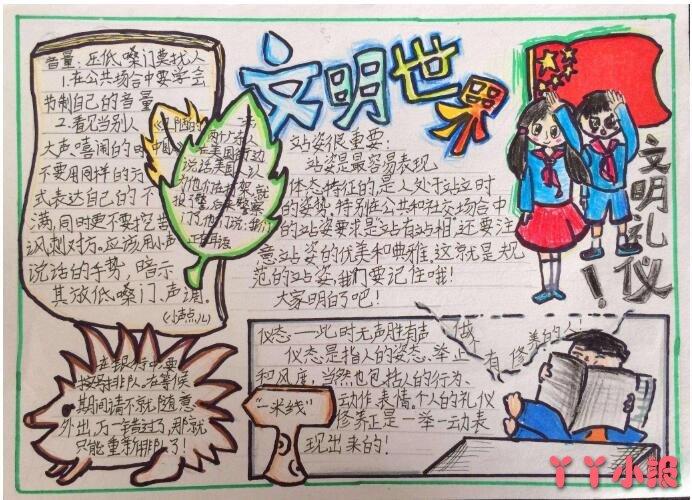 文明世界
音量:压低嗓门莫找人
1.在公共场合中要学会
节制自己的音量
2.看见当别人
大声、嘻闹的时
不要用同样的方
式表达自己的不
满,同时更不要挖苦
讽刺对方。应该用小声
说话的手势,暗示
其放低嗓门、声调。
(小声点儿)
站姿很重要:
站姿是最容易表现
体态特征的是人处于站立时
的姿势。特别在公共和社交场合中
的站姿要求是“站有站相”,还要注
意站姿的优美和典雅,这就是规
范的站姿,我们要记住哦!
大家明白了吧!
文明礼仪!
在银行中要
按序排队,在等候
期间请不就随意
外出,万一错过了,那就
只能重新排队了!
“一米线”
仪态——此时无声胜有声
仪态是指人的姿态、举止
和风度,当然也包括人的行为、
动作表情。个人的礼仪
修养正是一举一动表
现出来的!
做
有修养的人
丫丫小报